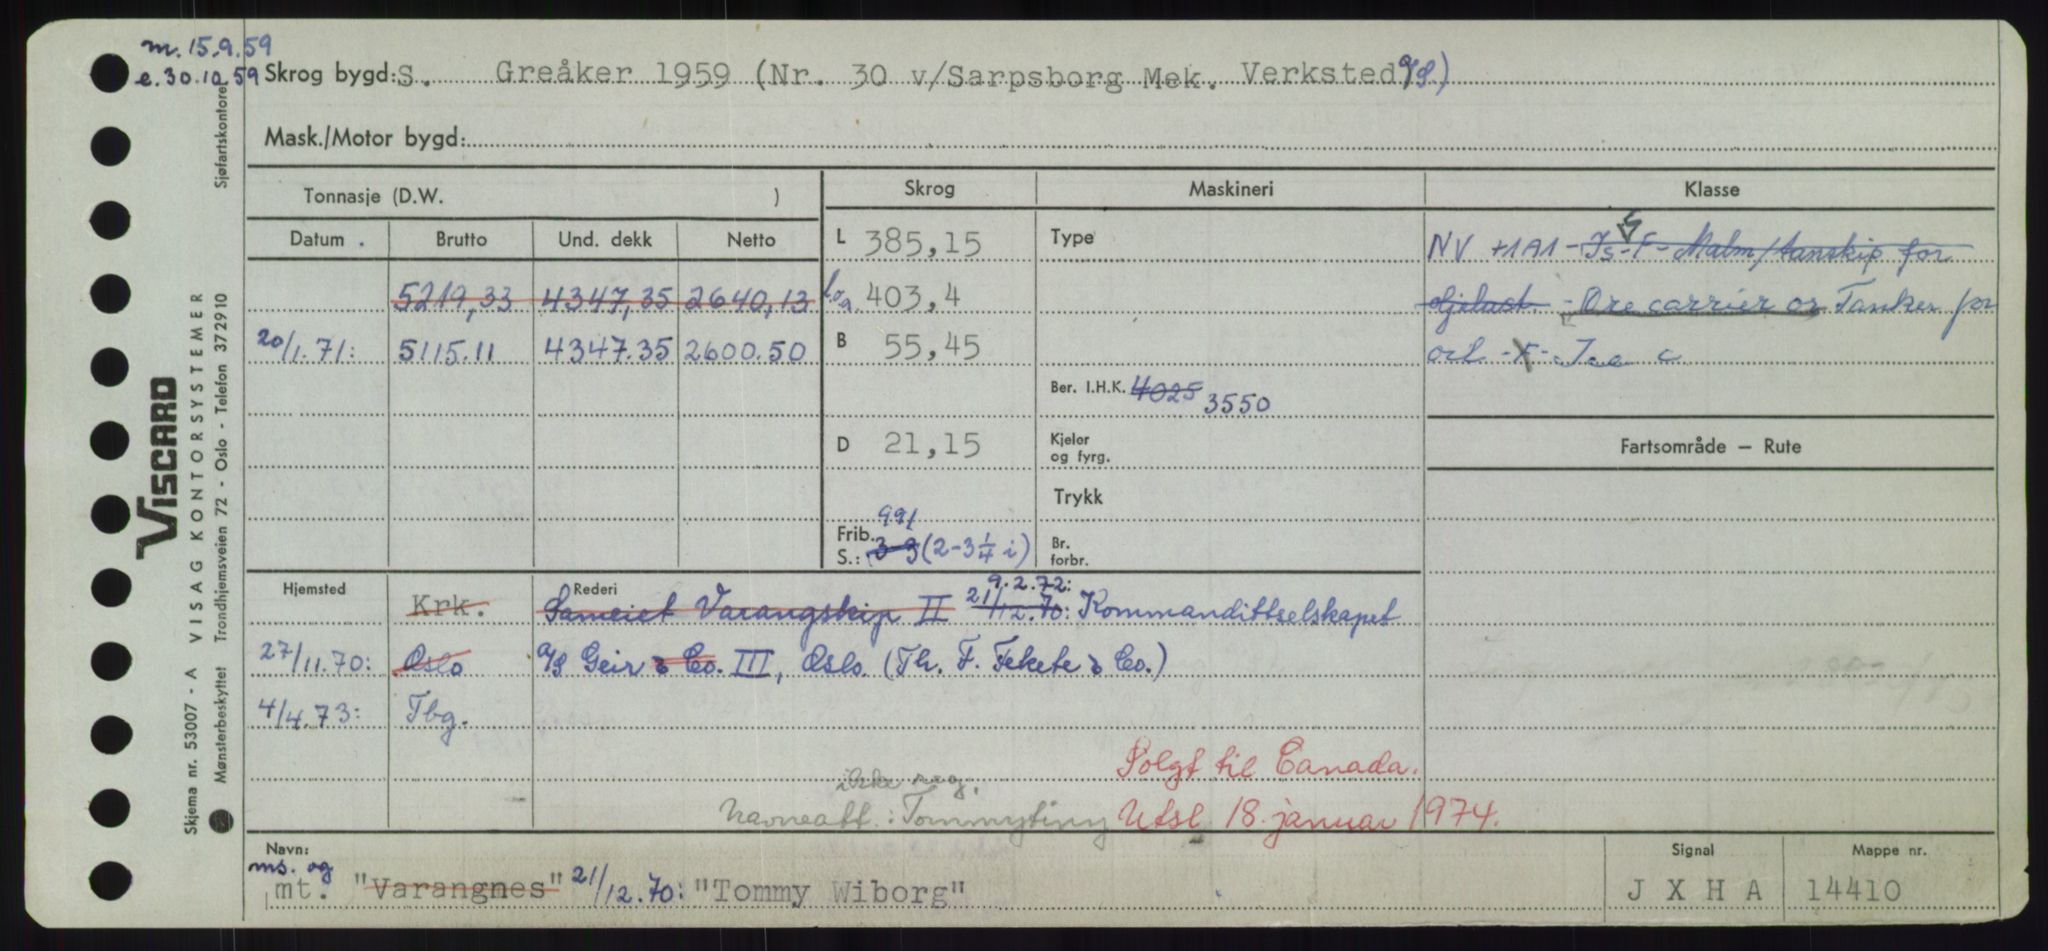 m. 15.9.59
e. 30.10.59 Skrog bygd: S. Greåker 1959 (Nr. 30 v/Sarpsborg Mek. Verksted A/S.)
Mask./Motor bygd:
Tonnasje (D.W. ) Skrog Maskineri Klasse
Datum . Brutto Und. dekk Netto L 385,15 Type NV +1A1 - Is - F - Malm/tanskip for
5219,33 4347,35 2640,13 l.o.a. 403,4 oljelast. - Ore carrier or Tanker for
20/1.71: 5115.11 4347.35 2600.50 B 55,45 oil - F - Ice c
Ber. I.H.K. 4025 3550
D 21,15 Kjeler og fyrg. Fartsområde — Rute
Trykk
991
Frib. S.: 3-3 (2-3 1/4 i) Br. forbr.
Hjemsted Krk. Rederi Sameiet Varangskip II 21/12.70: 9.2.72: Kommandittselskapet
27/11.70: Oslo A/S Geir & Co. III, Oslo. (Th. F. Fekete & Co.)
4/4.73: Tbg.
Solgt til Canada.
ikke reg.
Navneatt.: Tommytiny Utsl 18. januar 1974.
Navn: Signal Mappe nr.
ms. og
mt. "Varangnes" 21/12.70: "Tommy Wiborg" J X H A 14410
VISCARD
Skjema nr. 53007 - A VISAG KONTORSYSTEMER
Mønsterbeskyttet Trondhjemsveien 72 - Oslo - Telefon 372910 Sjøfartskontoret